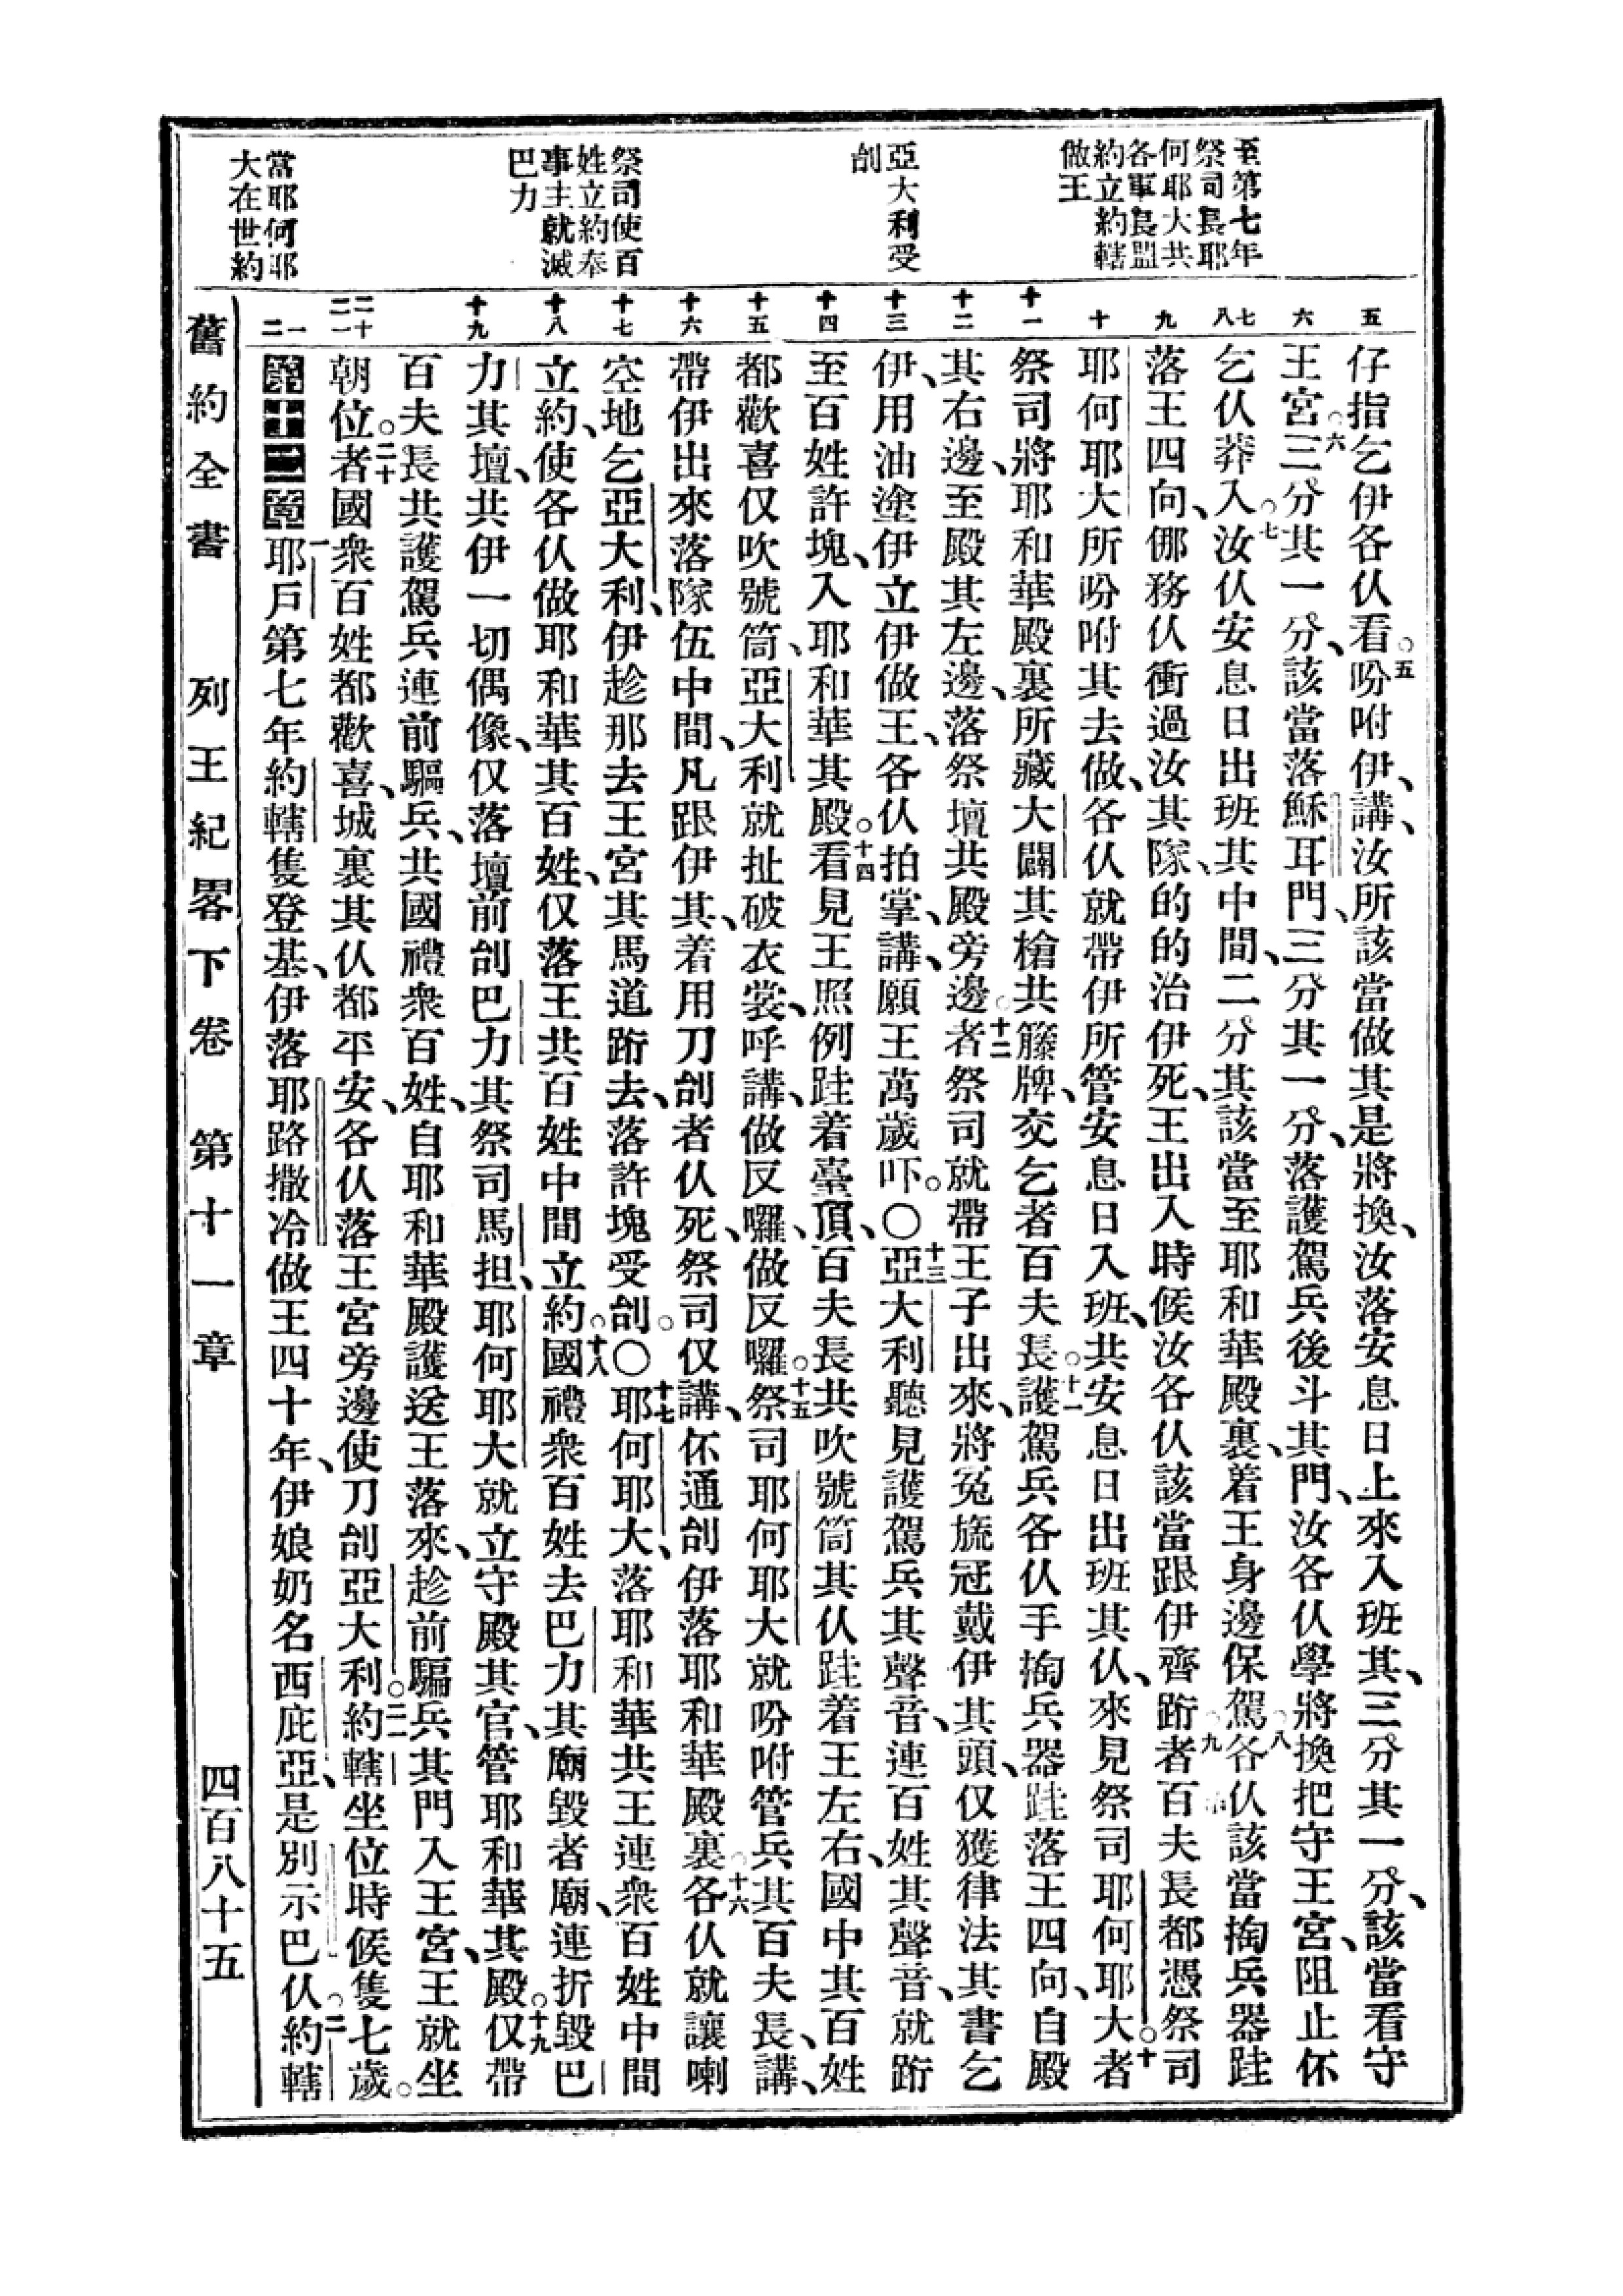 至第七年
祭司長耶
何耶大共
各軍長盟
約立約轄
做王
亞大利受
刣
祭司使百
姓立約奉
事主就滅
巴力
當耶何耶
大在世約
五
六
七
八
九
十
十一
十二
十三
十四
十五
十六
十七
十八
十九
二十
二一
一
二
仔指乞伊各仈看○五吩咐伊、講、汝所該當做其是將換、汝落安息日上來入班其、三分其一分、該當看守
王宮○六三分其一分、該當落穌耳門、三分其一分、落護駕兵後斗其門、汝各仈學將換把守王宮、阻止伓
乞仈莽入○七汝仈安息日出班其中間、二分其該當至耶和華殿裏、着王身邊保駕○八各仈該當掏兵器跬
落王四向、倻務仈衝過汝其隊、的的治伊死、王出入時候汝各仈該當跟伊齊跴○九者百夫長都憑祭司
耶何耶大所吩咐其去做、各仈就帶伊所管安息日入班、共安息日出班其仈、來見祭司耶何耶大○十者
祭司將耶和華殿裏所藏大闢其槍共籐牌、交乞者百夫長○十一護駕兵各仈手掏兵器跬落王四向、自殿
其右邊、至殿其左邊、落祭壇共殿旁邊○十二者祭司就帶王子出來、將冕旒冠戴伊其頭、仅獲律法其書乞
伊、用油塗伊立伊做王、各仈拍掌、講、願王萬歲吓。〇十三亞大利聽見護駕兵其聲音、連百姓其聲音、就跴
至百姓許塊、入耶和華其殿。十四看見王照例跬着臺頂、百夫長共吹號筒其仈跬着王左右、國中其百姓
都歡喜仅吹號筒、亞大利就扯破衣裳、呼講、做反囉、做反囉○十五祭司耶何耶大就吩咐管兵其百夫長、講、
帶伊出來落隊伍中間、凡跟伊其、着用刀刣者仈死、祭司仅講、伓通刣伊落耶和華殿裏○十六各仈就讓喇
空地乞亞大利、伊趁那去王宮其馬道跴去、落許塊受刣。〇十七耶何耶大、落耶和華共王連衆百姓中間
立約、使各仈做耶和華其百姓、仅落王共百姓中間立約○十八國禮衆百姓去巴力其廟毀者廟、連折毀巴
力其壇、共伊一切偶像、仅落壇前刣巴力其祭司馬担、耶何耶大就立守殿其官、管耶和華其殿○十九仅帶
百夫長共護駕兵連前驅兵、共國禮衆百姓、自耶和華殿護送王落來、趁前驅兵其門入王宮、王就坐
朝位。二十者國衆百姓都歡喜、城裏其仈都平安、各仈落王宮旁邊使刀刣亞大利○二一約轄坐位時候隻七歲。
第十二章 一耶戶第七年約轄隻登基、伊落耶路撒冷做王四十年、伊娘奶名西庇亞、是別示巴仈○二約轄
舊約全書 列王紀畧下卷 第十一章 四百八十五